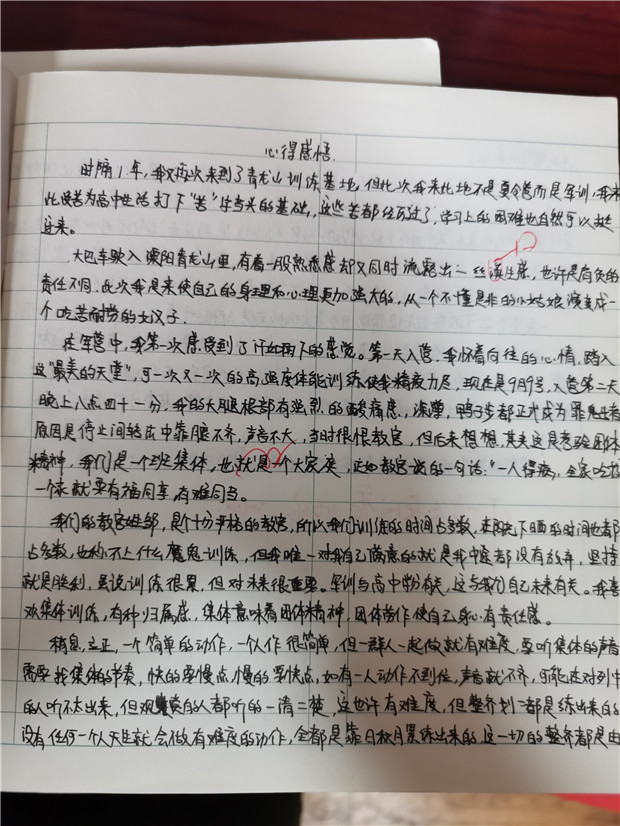 心得感悟.
时隔1年,我又再次来到了青龙山训练基地,但此次我来此地不是夏令营而是军训,我来
此是为高中生活打下"苦"字当头的基础,这些苦都经历过了,学习上的困难也自然可以挺
过来。
大巴车驶入溧阳青龙山里,有着一股熟悉感却又同时流露出一丝陌生感,也许是肩负的
责任不同.此次我是来使自己的身理和心理更加强大的,从一个不懂是非的小姑娘演变成一
个吃苦耐劳的女汉子.
在军营中,我第一次感受到了汗如雨下的感觉。第一天入营,我怀着向往的心情,踏入
这"最美的天堂",可一次又一次的高强度体能训练使我精疲力尽,现在是9月9号,入营第二天
晚上八点四十一分,我的大腿根部有强烈的酸痛感,深蹲,鸭子步都正式成为罪魁祸首
原因是停止间转法中靠腿不齐,声音不大,当时很恨教官,但后来想想,其实这是考验团体
精神,我们是一个班集体,也就是一个大家庭,正如教官说的一句话:"一人得病,全家吃药
一个家就要有福同享,有难同当。
我们的教官姓邹,是个十分严格的教官,所以我们训练的时间占多数,在阳光下晒的时间也都
占多数,也称不上什么魔鬼训练,但我唯一对我自己满意的就是我中途都没有放弃,坚持
就是胜利,虽说训练很累,但对未来很重要。军训与高中物有关,这与我们自己未来有关。我喜
欢集体训练,有种归属感,集体意味着团体精神,团体劳作使自己身心有责任感。
稍息,立正,一个简单的动作,一个人作很简单,但一群人一起做就有难度,要听集体的声音
需要找集体的节奏,快的要慢点,慢的要快点,如有一人动作不到位,声音就不齐,可能在对列中
的人听不大出来,但观赏的人都听的一清二楚,这也许有难度,但整齐划一都是练出来的
没有任何一个人天生就会做有难度的动作,全都是靠日积月累练出来的,这一切的整齐都是由